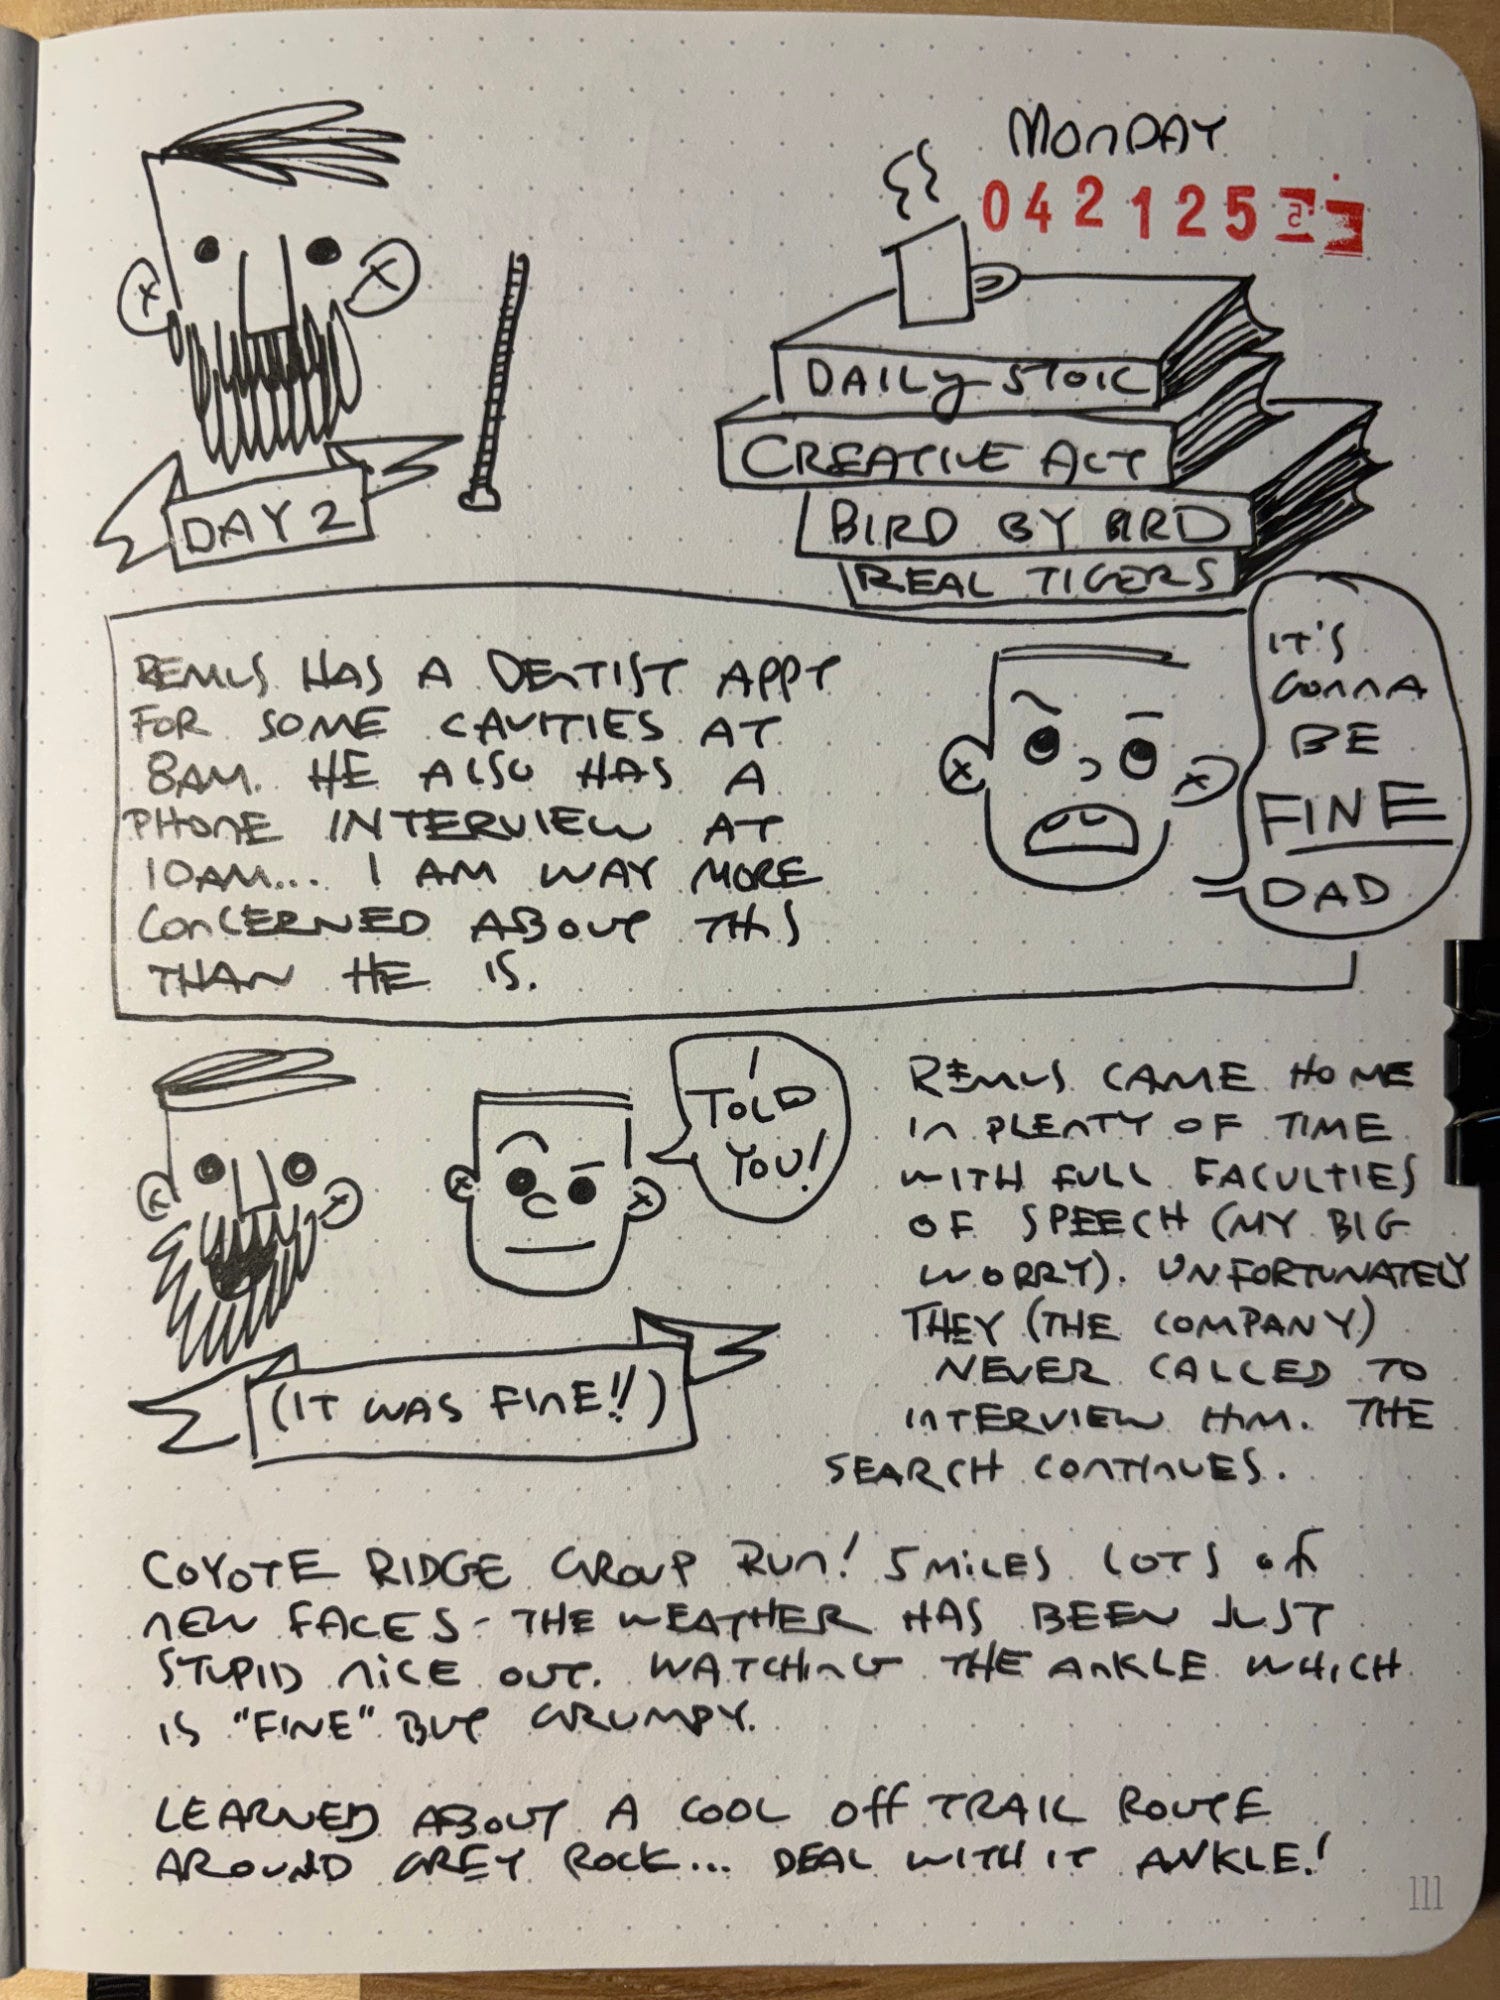 MONDAY
042125
DAY 2
DAILY STOIC
CREATIVE ACT
BIRD BY BIRD
REAL TIGERS
REMUS HAS A DENTIST APPT
FOR SOME CAVITIES AT
8AM. HE ALSO HAS A
PHONE INTERVIEW AT
10AM... I AM WAY MORE
CONCERNED ABOUT THIS
THAN HE IS.
IT'S
GONNA
BE
FINE
DAD
I
TOLD
YOU!
(IT WAS FINE!!)
REMUS CAME HOME
IN PLENTY OF TIME
WITH FULL FACULTIES
OF SPEECH (MY BIG
WORRY). UNFORTUNATELY
THEY (THE COMPANY)
NEVER CALLED TO
INTERVIEW HIM. THE
SEARCH CONTINUES.
COYOTE RIDGE GROUP RUN! 5 MILES LOTS OF
NEW FACES - THE WEATHER HAS BEEN JUST
STUPID NICE OUT. WATCHING THE ANKLE WHICH
IS "FINE" BUT GRUMPY.
LEARNED ABOUT A COOL OFF TRAIL ROUTE
AROUND GREY ROCK... DEAL WITH IT ANKLE!
111